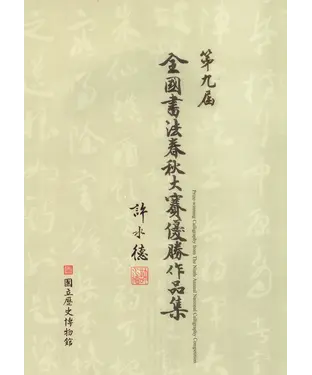 第九屆
全國書法春秋大賽優勝作品集
Prize-winning Calligraphy from The Ninth Annual National Calligraphy Competition
許水德
國立歷史博物館